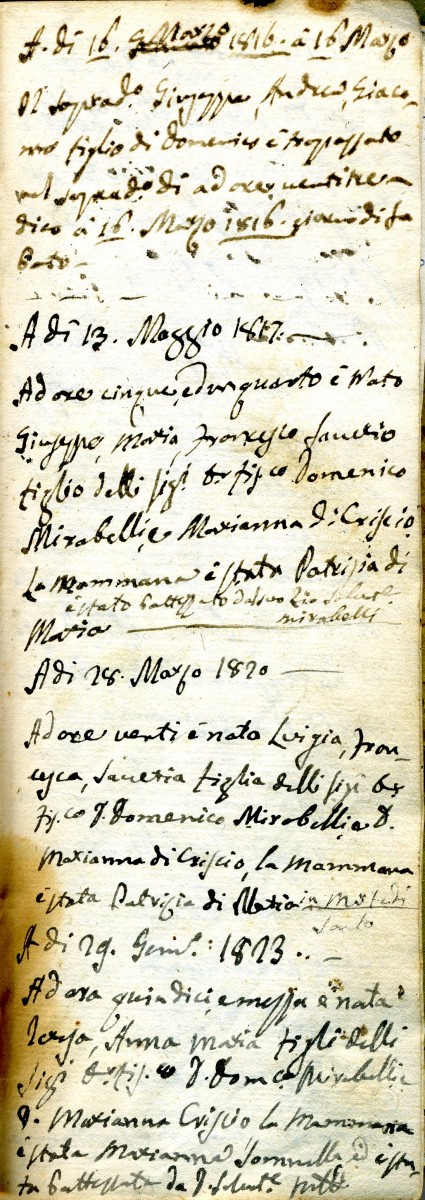 A. di 16. Marzo 1816. a 16 Marzo
Il soprad.o Giuseppe, Andrea, Giaco-
mo figlio di Domenico è trapassato
nel soprad.o di ad ore ventitre
dico a 16. Marzo 1816. giorno di Sa
bato
A di 13. Maggio 1817.
Ad ore cinque, ed un quarto è Nato
Giuseppe, Maria, Francesco Saverio
figlio delli Sig.i Dr fis.co Domenico
Mirabelli, e Marianna di Criscio
La Mammana è stata Patrizia di
è stato battezzato dal suo Zio Salvat.e
mirabelli
Maria
A di 28. Marzo 1820
Ad ore venti è nata Luigia, Fran-
cesca, Saveria figlia delli Sig.i Dr
Fis.co D. Domenico Mirabelli, e D.
Marianna di Criscio, la Mammana
è stata Patrizia di Maria in Marte di
Santo
A di 29. Genn.o 1823.
Ad ora quindici, e mezza è nata
Teresa, Anna Maria figli delli
Sig.i Dr fis.co D. Dom.co Mirabelli e
D. Marianna Criscio la Mammana
è stata Marianna ed è sta-
ta battezzata da D. Salvat.e